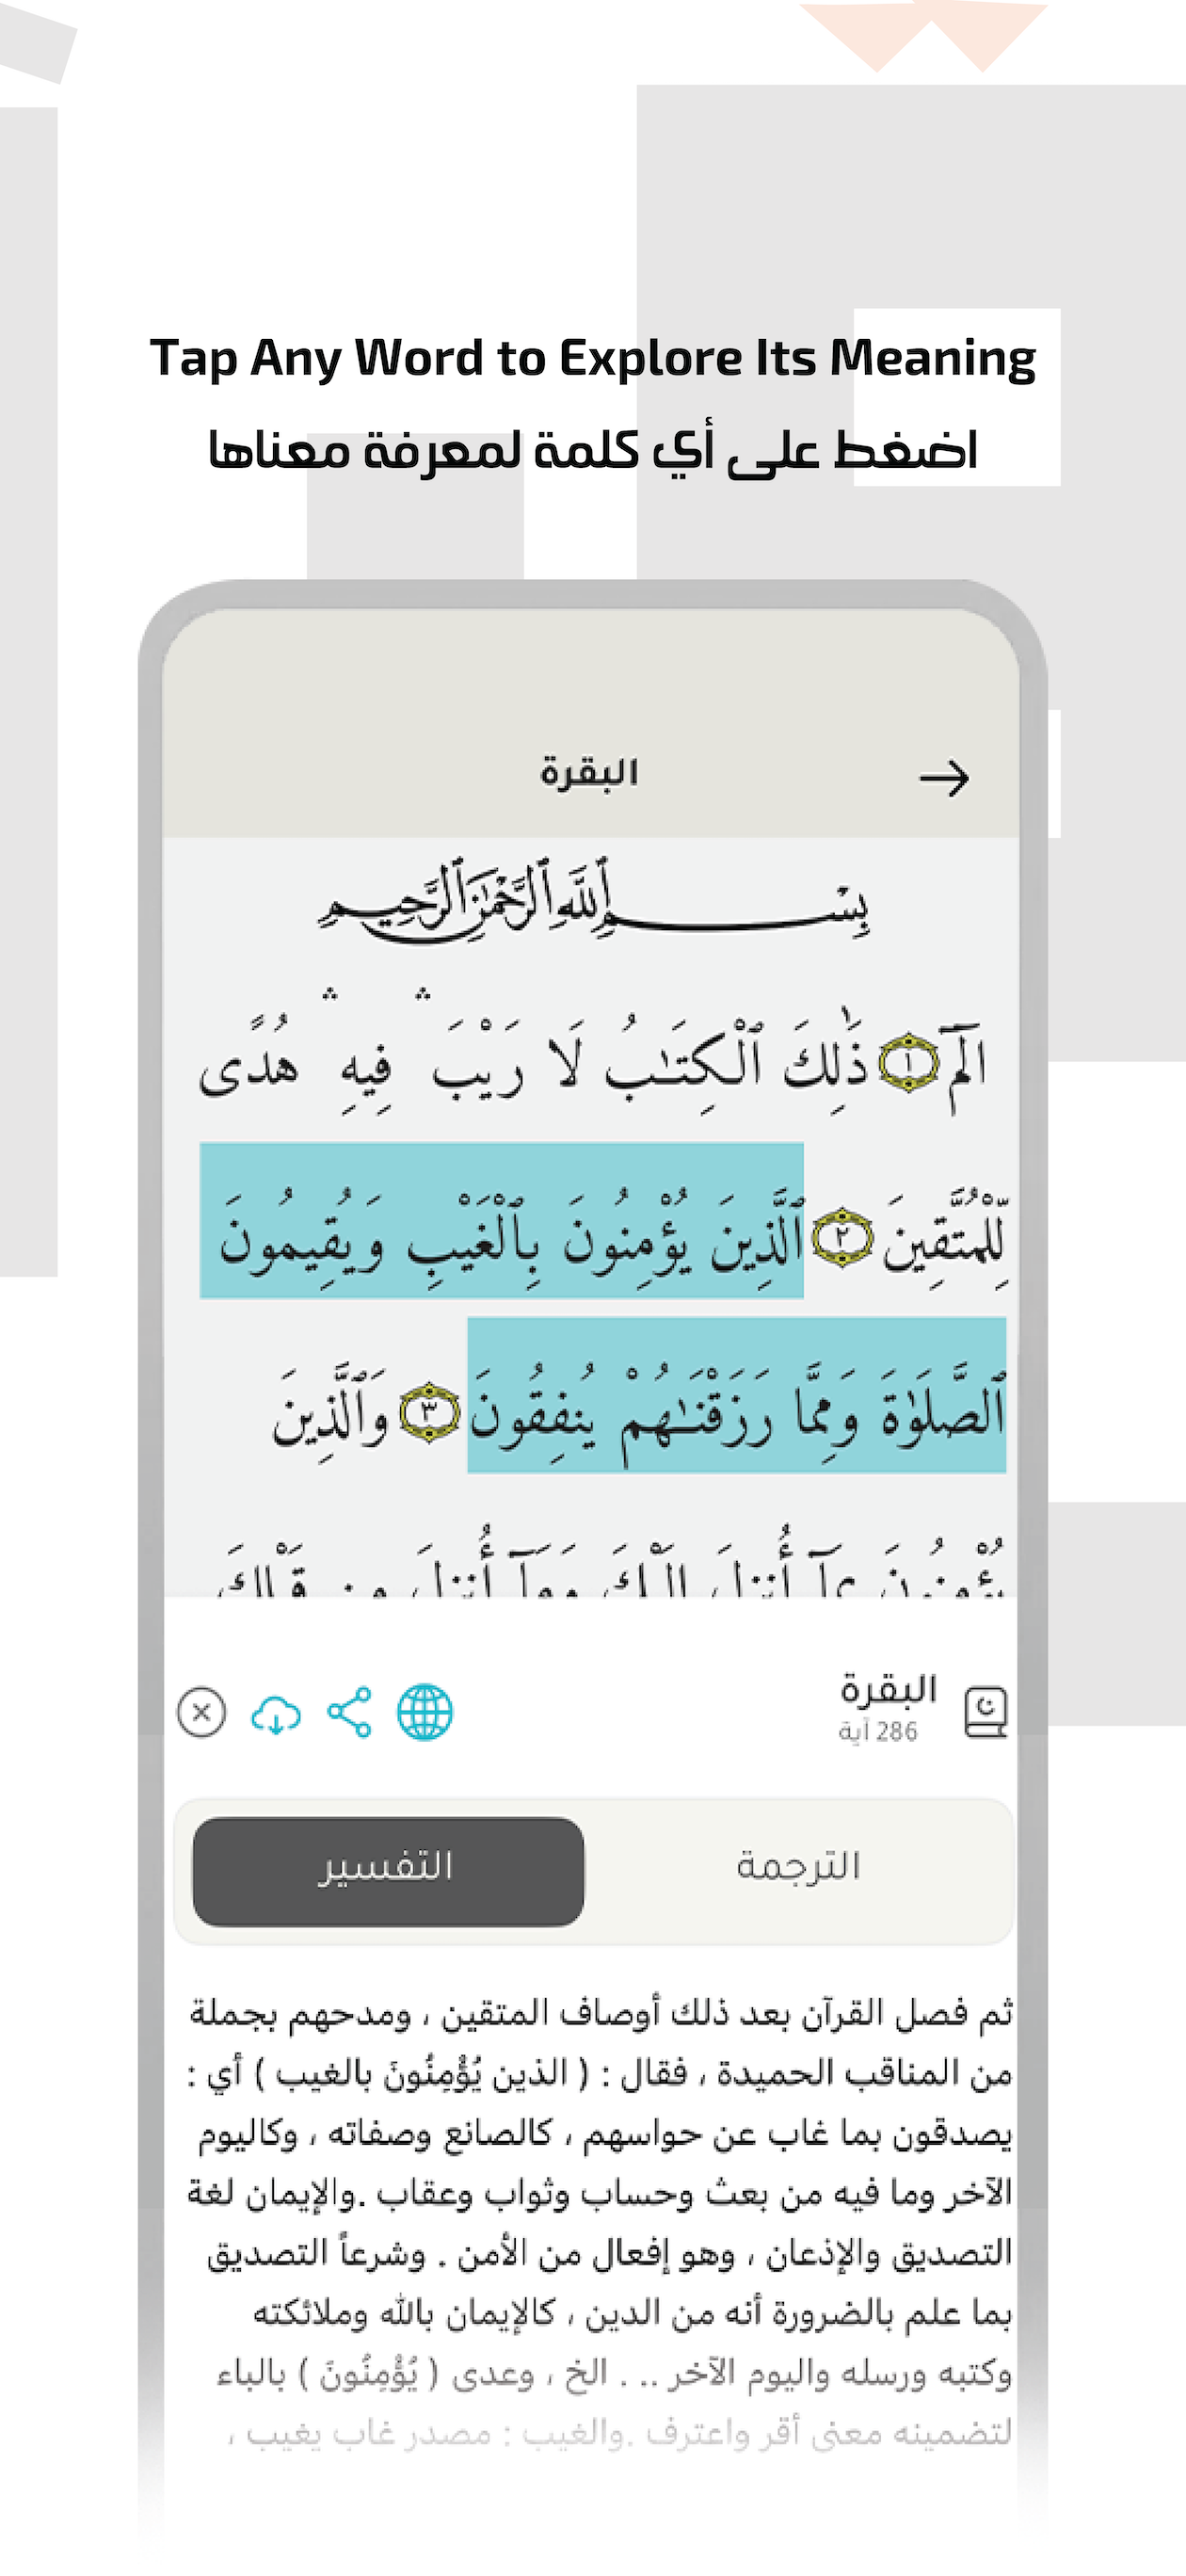 Tap Any Word to Explore Its Meaning
اضغط على أي كلمة لمعرفة معناها
البقرة
بِسْمِ ٱللَّهِ ٱلرَّحْمَٰنِ ٱلرَّحِيمِ
الٓمٓ ١ ذَٰلِكَ ٱلْكِتَـٰبُ لَا رَيْبَ ۛ فِيهِ ۛ هُدًى
لِّلْمُتَّقِينَ ٢ ٱلَّذِينَ يُؤْمِنُونَ بِٱلْغَيْبِ وَيُقِيمُونَ
ٱلصَّلَوٰةَ وَمِمَّا رَزَقْنَـٰهُمْ يُنفِقُونَ ٣ وَٱلَّذِينَ
يُؤْمِنُونَ بِمَآ أُنزِلَ إِلَيْكَ وَمَآ أُنزِلَ مِن قَبْلِكَ
البقرة
286 آية
الترجمة
التفسير
ثم فصل القرآن بعد ذلك أوصاف المتقين ، ومدحهم بجملة
من المناقب الحميدة ، فقال : ( الذين يُؤْمِنُونَ بالغيب ) أي :
يصدقون بما غاب عن حواسهم ، كالصانع وصفاته ، وكاليوم
الآخر وما فيه من بعث وحساب وثواب وعقاب .والإيمان لغة
التصديق والإذعان ، وهو إفعال من الأمن . وشرعاً التصديق
بما علم بالضرورة أنه من الدين ، كالإيمان بالله وملائكته
وكتبه ورسله واليوم الآخر .. . الخ ، وعدى ( يُؤْمِنُونَ ) بالباء
لتضمينه معنى أقر واعترف .والغيب : مصدر غاب يغيب ،